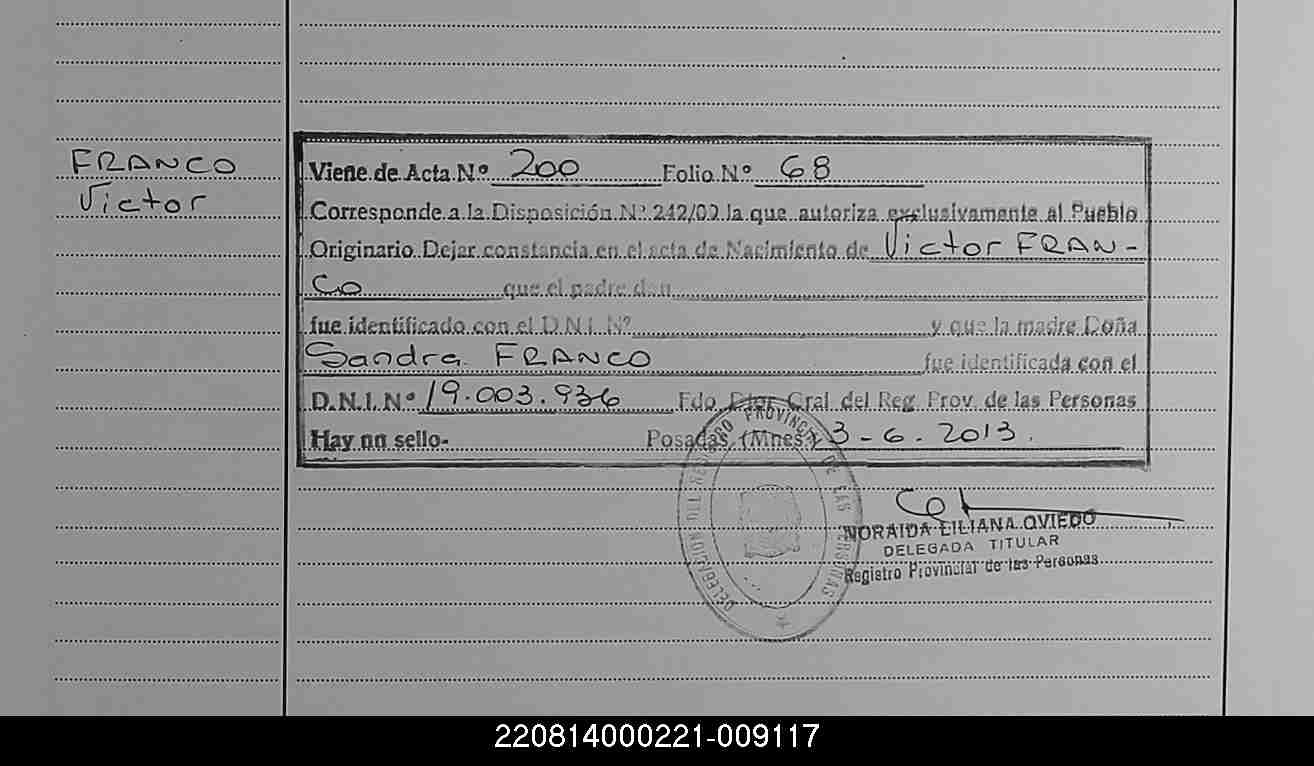 FRANCO
Victor
Viene de Acta Nº 200 Folio Nº 68
Corresponde a la Disposición Nº 242/09 la que autoriza exclusivamente al Pueblo
Originario Dejar constancia en el acta de Nacimiento de Victor FRAN-
co que el padre don
fue identificado con el D.N.I. Nº y que la madre Doña
Sandra FRANCO fue identificada con el
D.N.I. Nº 19.003.936 Fdo Dtor Gral del Reg. Prov. de las Personas
Hay un sello- Posadas, (Mnes) 3-6-2013.
DELEGACION DEL REGISTRO PROVINCIAL DE LAS PERSONAS
NORAIDA LILIANA OVIEDO
DELEGADA TITULAR
Registro Provincial de las Personas
220814000221-009117